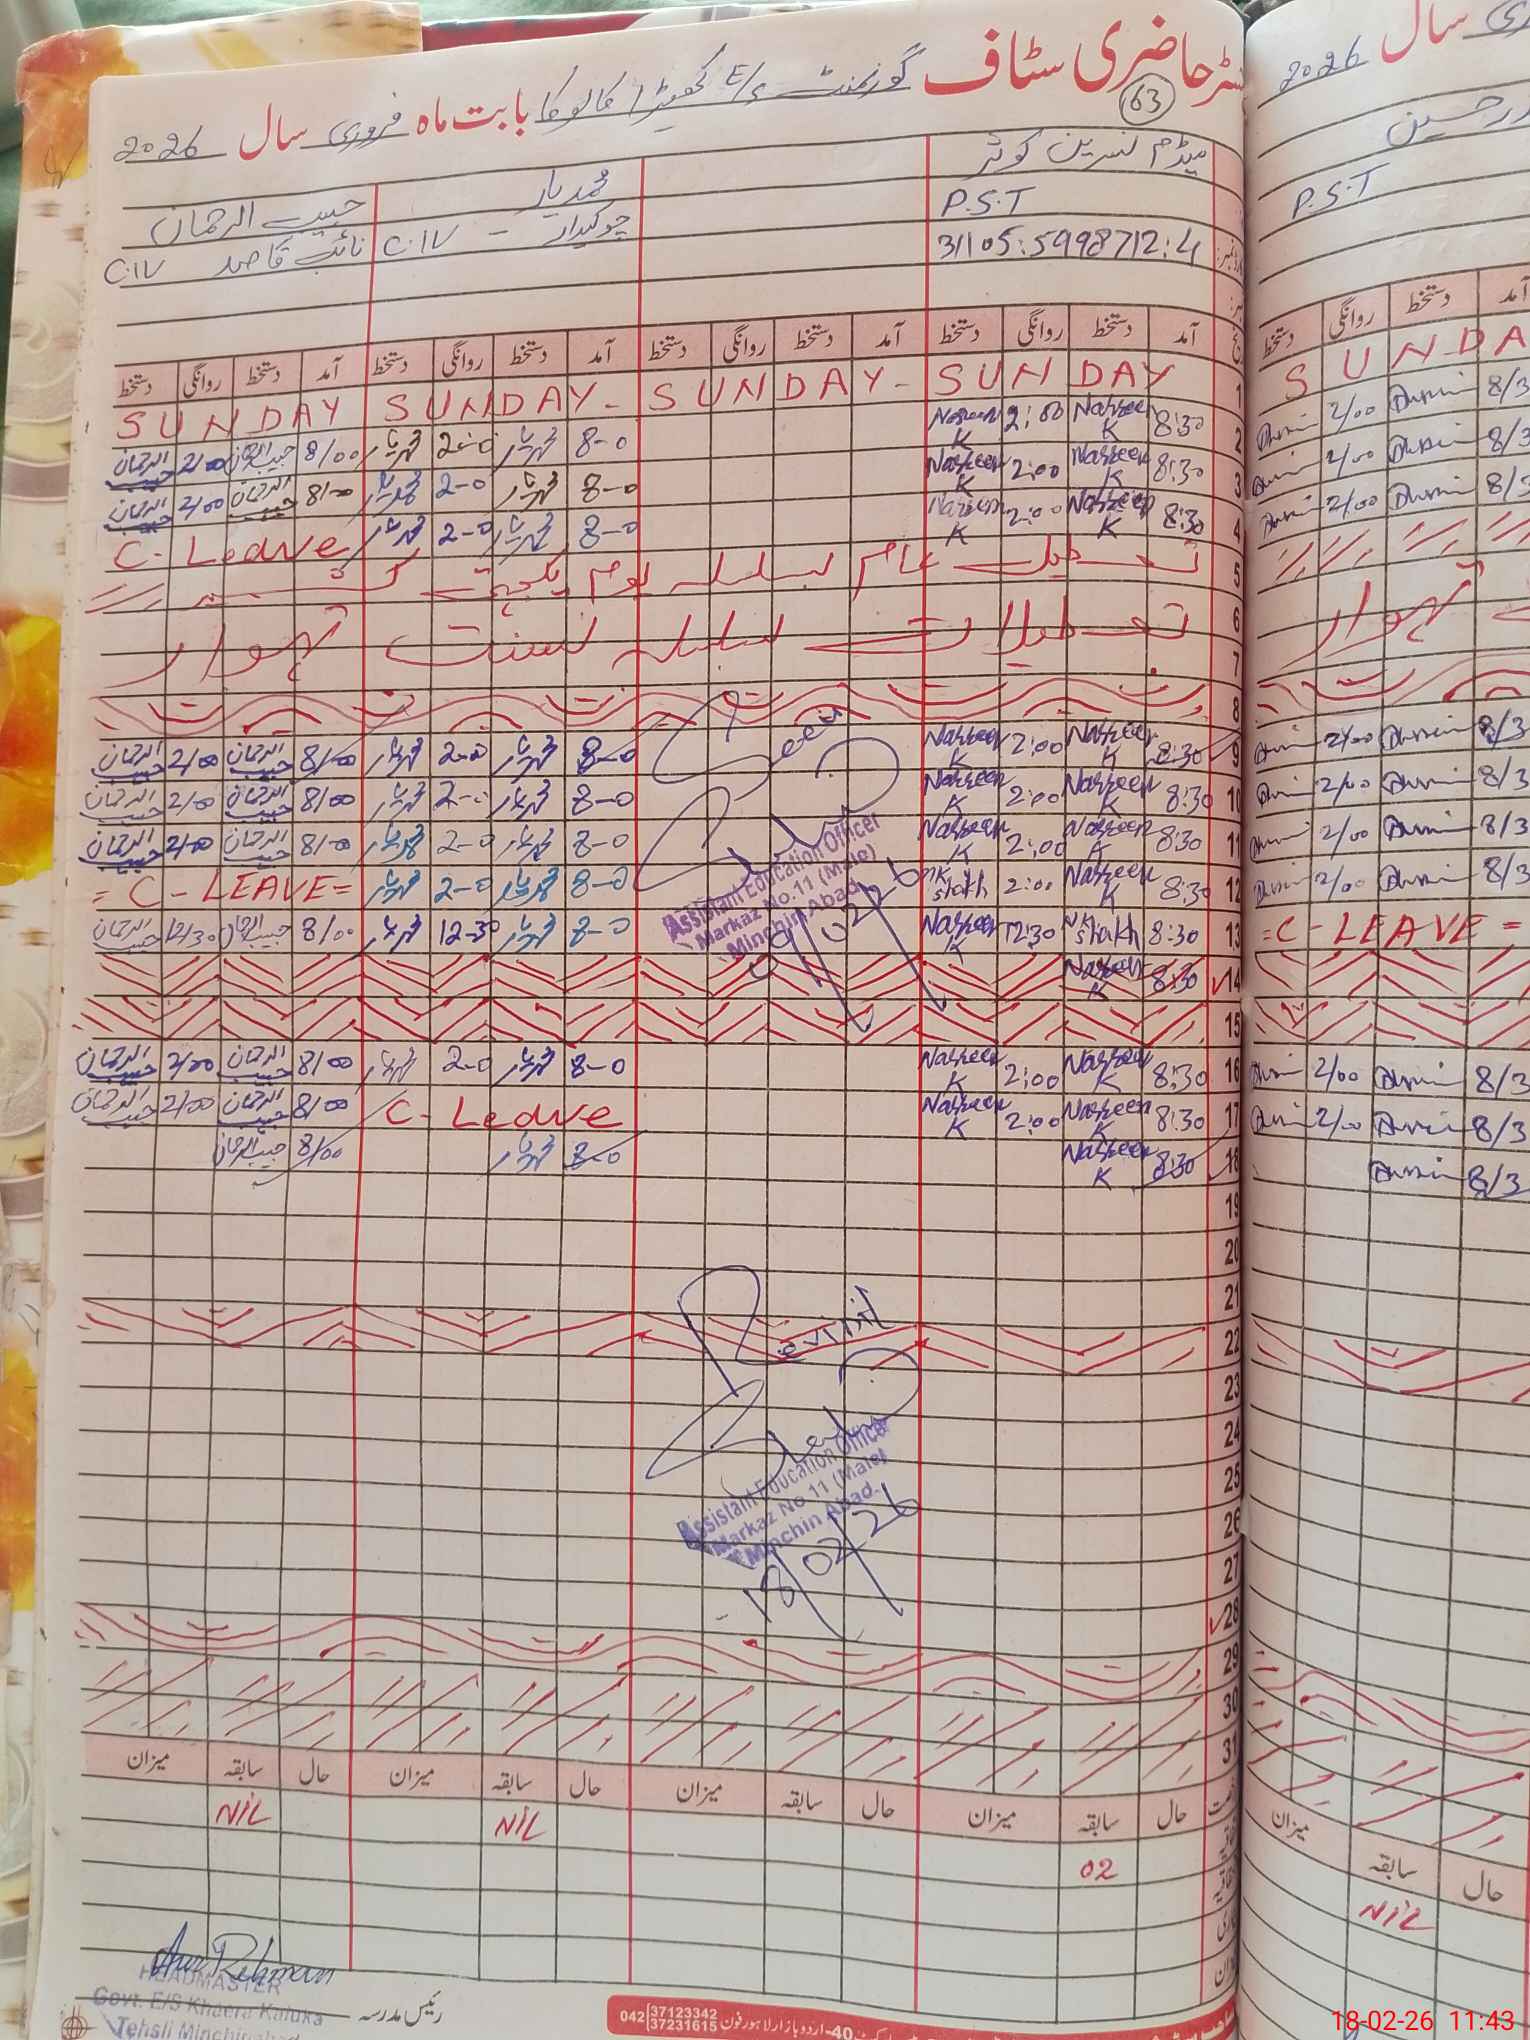 رجسٹر حاضری سٹاف گورنمنٹ E/S کھیڑا کالوکا بابت ماہ فروری سال 2026
63
میڈم نسرین کوثر
محمد یار
حبیب الرحمان
P.S.T
چوکیدار - C.IV
نائب قاصد C.IV
31105:5998712:4
آمد دستخط روانگی دستخط آمد دستخط روانگی دستخط آمد دستخط روانگی دستخط آمد دستخط روانگی دستخط
1 SUNDAY SUNDAY - SUNDAY - SUNDAY
2 8:30 Nasreen K 2:00 Nasreen K 8-0 محمد یار 2-0 محمد یار 8/00 حبیب الرحمان 2/00 حبیب الرحمان
3 8:30 Nasreen K 2:00 Nasreen K 8-0 محمد یار 2-0 محمد یار 8/00 حبیب الرحمان 2/00 حبیب الرحمان
4 8:30 Nasreen K 2:00 Nasreen K 8-0 محمد یار 2-0 محمد یار C- Leave
5 تعطیل عام بسلسلہ یوم یکجہتی کشمیر
6 تعطیلات بسلسلہ بسنت تہوار
7
8
9 8:30 Nasreen K 2:00 Nasreen K 8-0 محمد یار 2-0 محمد یار 8/00 حبیب الرحمان 2/00 حبیب الرحمان
10 8:30 Nasreen K 2:00 Nasreen K 8-0 محمد یار 2-0 محمد یار 8/00 حبیب الرحمان 2/00 حبیب الرحمان
11 8:30 Nasreen K 2:00 Nasreen K 8-0 محمد یار 2-0 محمد یار 8/00 حبیب الرحمان 2/00 حبیب الرحمان
12 8:30 Nasreen K 2:00 8-0 محمد یار 2-0 محمد یار = C - LEAVE =
13 8:30 12:30 Nasreen K 8-0 محمد یار 12-30 محمد یار 8/00 حبیب الرحمان 12/30 حبیب الرحمان
14 8:30 Nasreen K
15
16 8:30 Nasreen K 2:00 Nasreen K 8-0 محمد یار 2-0 محمد یار 8/00 حبیب الرحمان 2/00 حبیب الرحمان
17 8:30 Nasreen K 2:00 Nasreen K C- Leave 8/00 حبیب الرحمان 2/00 حبیب الرحمان
18 8:30 Nasreen K 8-0 محمد یار 8/00 حبیب الرحمان
19
20
21
22
23
24
25
26
27
28
29
30
31
Assistant Education Officer
Markaz No.11 (Male)
Minchin Abad.
9/02/26
Assistant Education Officer
Markaz No 11 (Male)
Minchin Abad.
18/02/26
حال سابقہ میزان حال سابقہ میزان حال سابقہ میزان حال سابقہ میزان
NIL NIL
02
HEADMASTER
Govt. E/S Khaera Kaluka
Tehsil Minchinabad
رئیس مدرسہ
40-اردو بازار لاہور فون 042 37123342 37231615
سال 2026
P.S.T
آمد دستخط روانگی دستخط
SUNDA
8/3 2/00
8/3 2/00
8/3 2/00
تہوار
8/3 2/00
8/3 2/00
8/3 2/00
8/3 2/00
=C - LEAVE =
8/3 2/00
8/3 2/00
8/3
حال سابقہ میزان
NIL
18-02-26 11:43